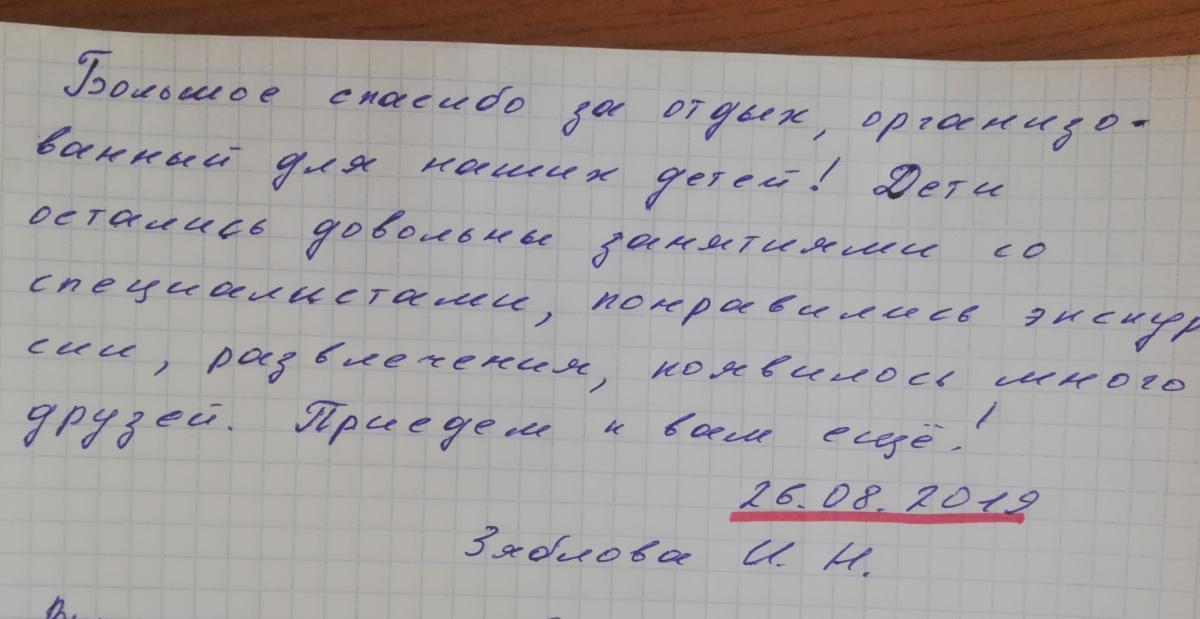 Большое спасибо за отдых, организо-
ванный для наших детей! Дети
остались довольны занятиями со
специалистами, понравились экскур
сии, развлечения, появилось много
друзей. Приедем к вам ещё!
26.08.2019
Зяблова И. Н.